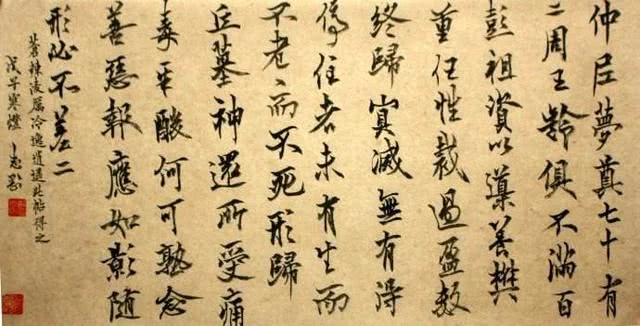 仲尼夢奠七十有
二周王齡俱不滿百
彭祖資以導養樊
重任性裁過盈數
終歸冥滅無有得
停住者未有生而
不老〻而不死形歸
丘墓神還所受痛
毒辛酸何可熟念
善惡報應如影隨
形必不差二
蒼辣淩厲冷逸遒此帖得之
寒燈